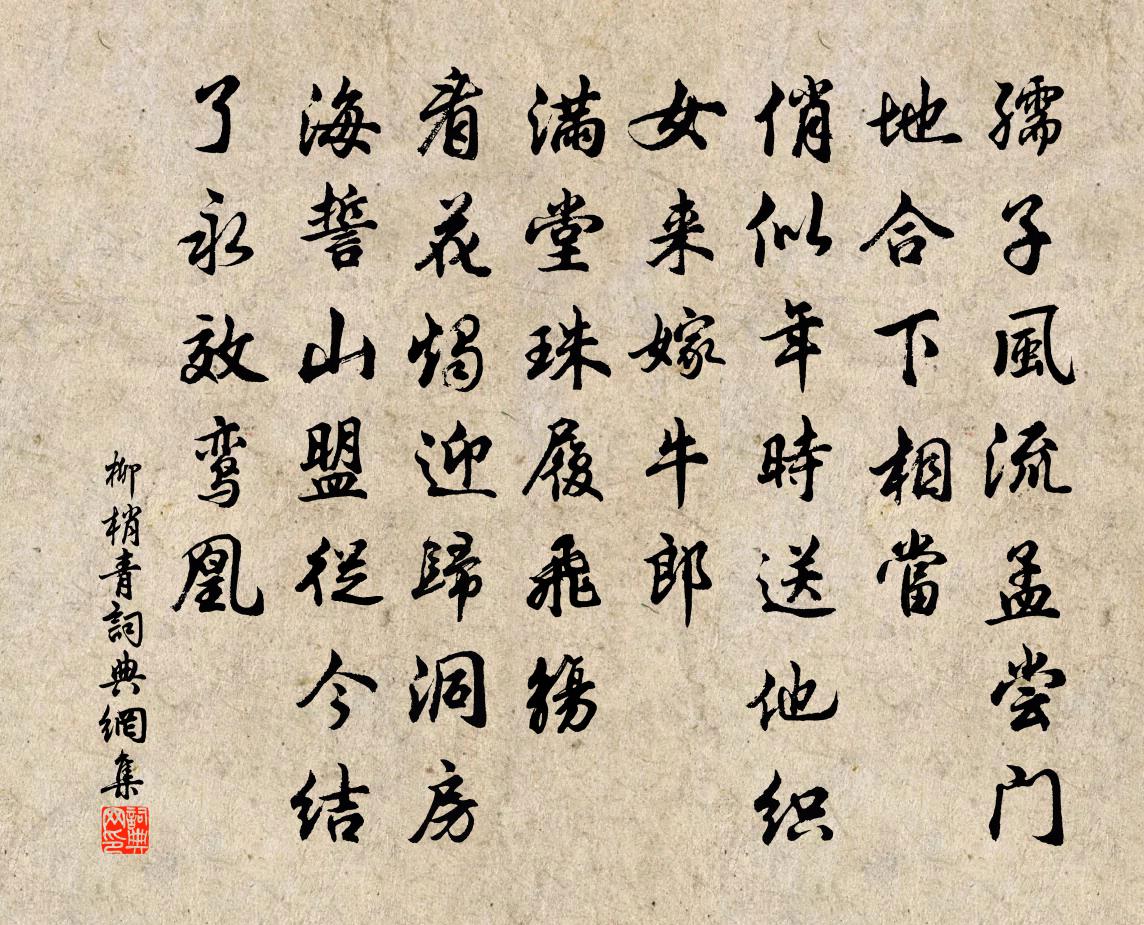 孺子風流孟尝门
地合下相當
俏似年時送他织
女来嫁牛郎
满堂珠履飛觴
看花燭迎歸洞房
海誓山盟從今结
了永效鸾凰
柳梢青詞典網集
詞典网印